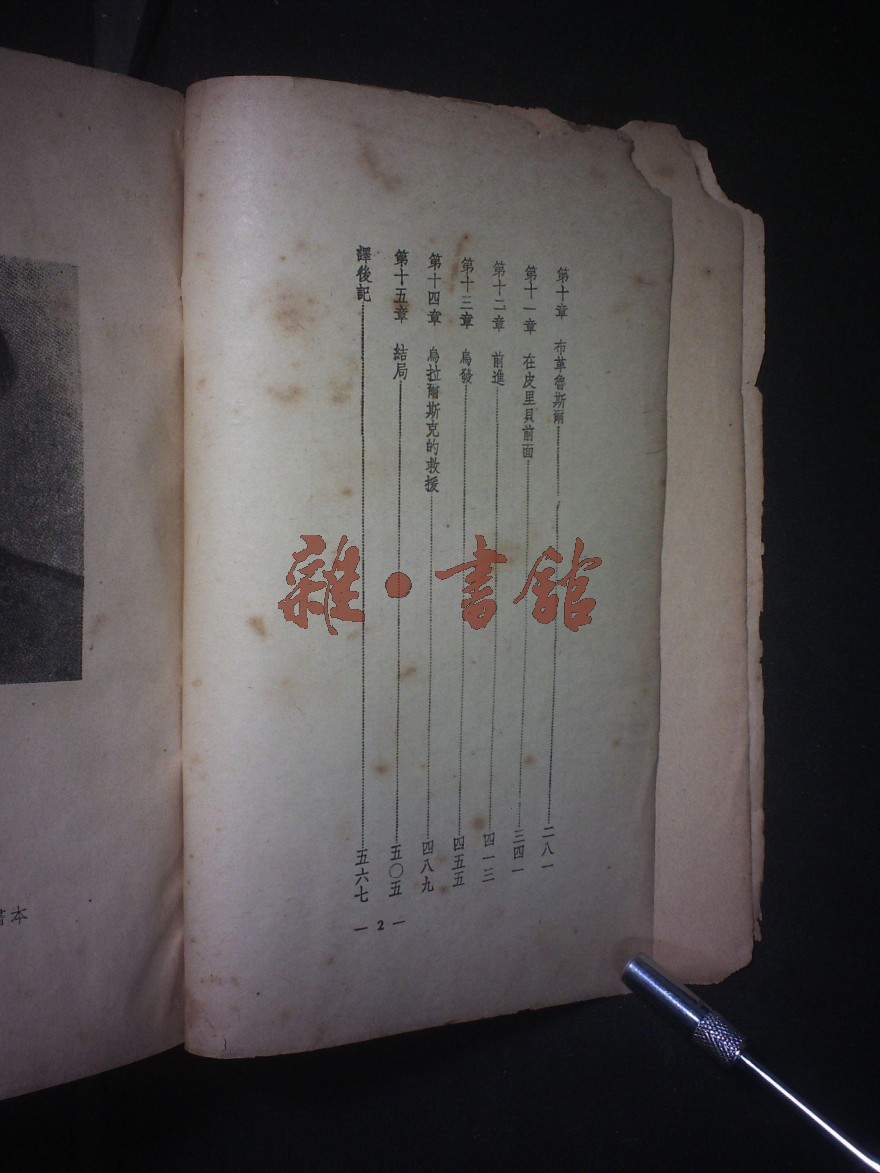 第十章 布革魯斯爾……二八一
第十一章 在皮里貝前面……三四一
第十二章 前進……四一三
第十三章 烏發……四五五
第十四章 烏拉爾斯克的救援……四八九
第十五章 結局……五〇五
譯後記……五六七
— 2 —
雜·書館
書本